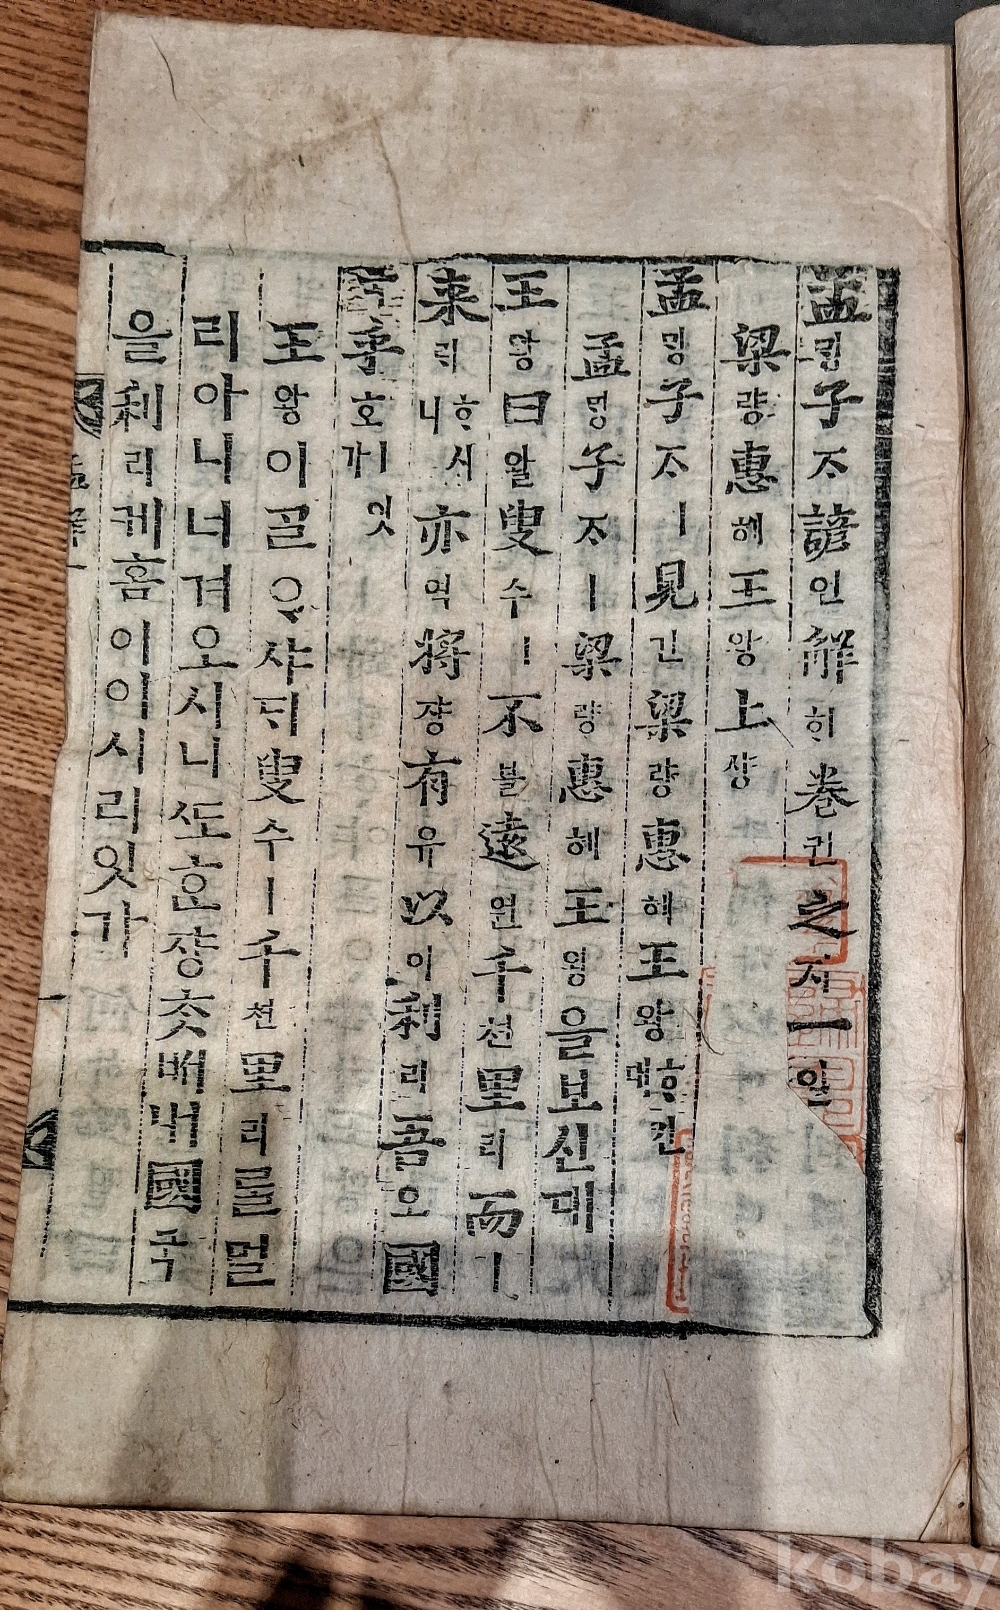 孟밍子ᄌᆞ諺언解ᄒᆡ卷권之지一일
梁량惠혜王왕上샹
孟밍子ᄌᆞㅣ見견梁량惠혜王왕ᄒᆞ신대
孟ᄆᆡᆼ子ᄌᆞㅣ梁량惠혜王왕을보신대
王왕曰왈叟수ㅣ不블遠원千쳔里리而ㅣ
來ᄅᆡᄒᆞ시니亦역將쟝有유以이利리吾오國
乎호ㅣ잇가
王왕이ᄀᆞᆯᄋᆞ샤ᄃᆡ叟수ㅣ千쳔里리를멀
리아니너겨오시니ᄯᅩᄒᆞᆫ쟝ᄎᆞᆺᄡᅥ내國국
을利리케홈이이시리잇가
kobay